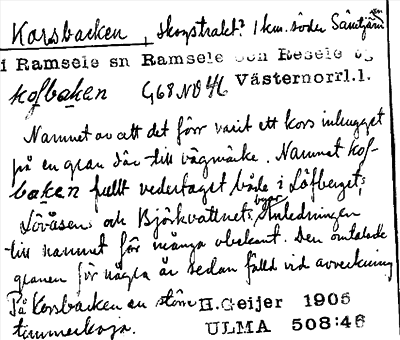 Korsbacken, skogstrakt? 1 km. söder Sämtjärnen
i Ramsele sn Ramsele och Resele tg
kofbaken G68NO4/6 Västernorrl.l.
Namnet av att det förr varit ett kors inhugget
på en gran där till vägmärke. Namnet kof-
baken fullt vedertaget både i Löfberget,
Lövåsen och Björkvattnets byar. Anledningen
till namnet för många obekant. Den omtalade
granen för några år sedan fälld vid avverkning
På Korsbacken en större H.Geijer 1906
timmerkoja. ULMA 508:46